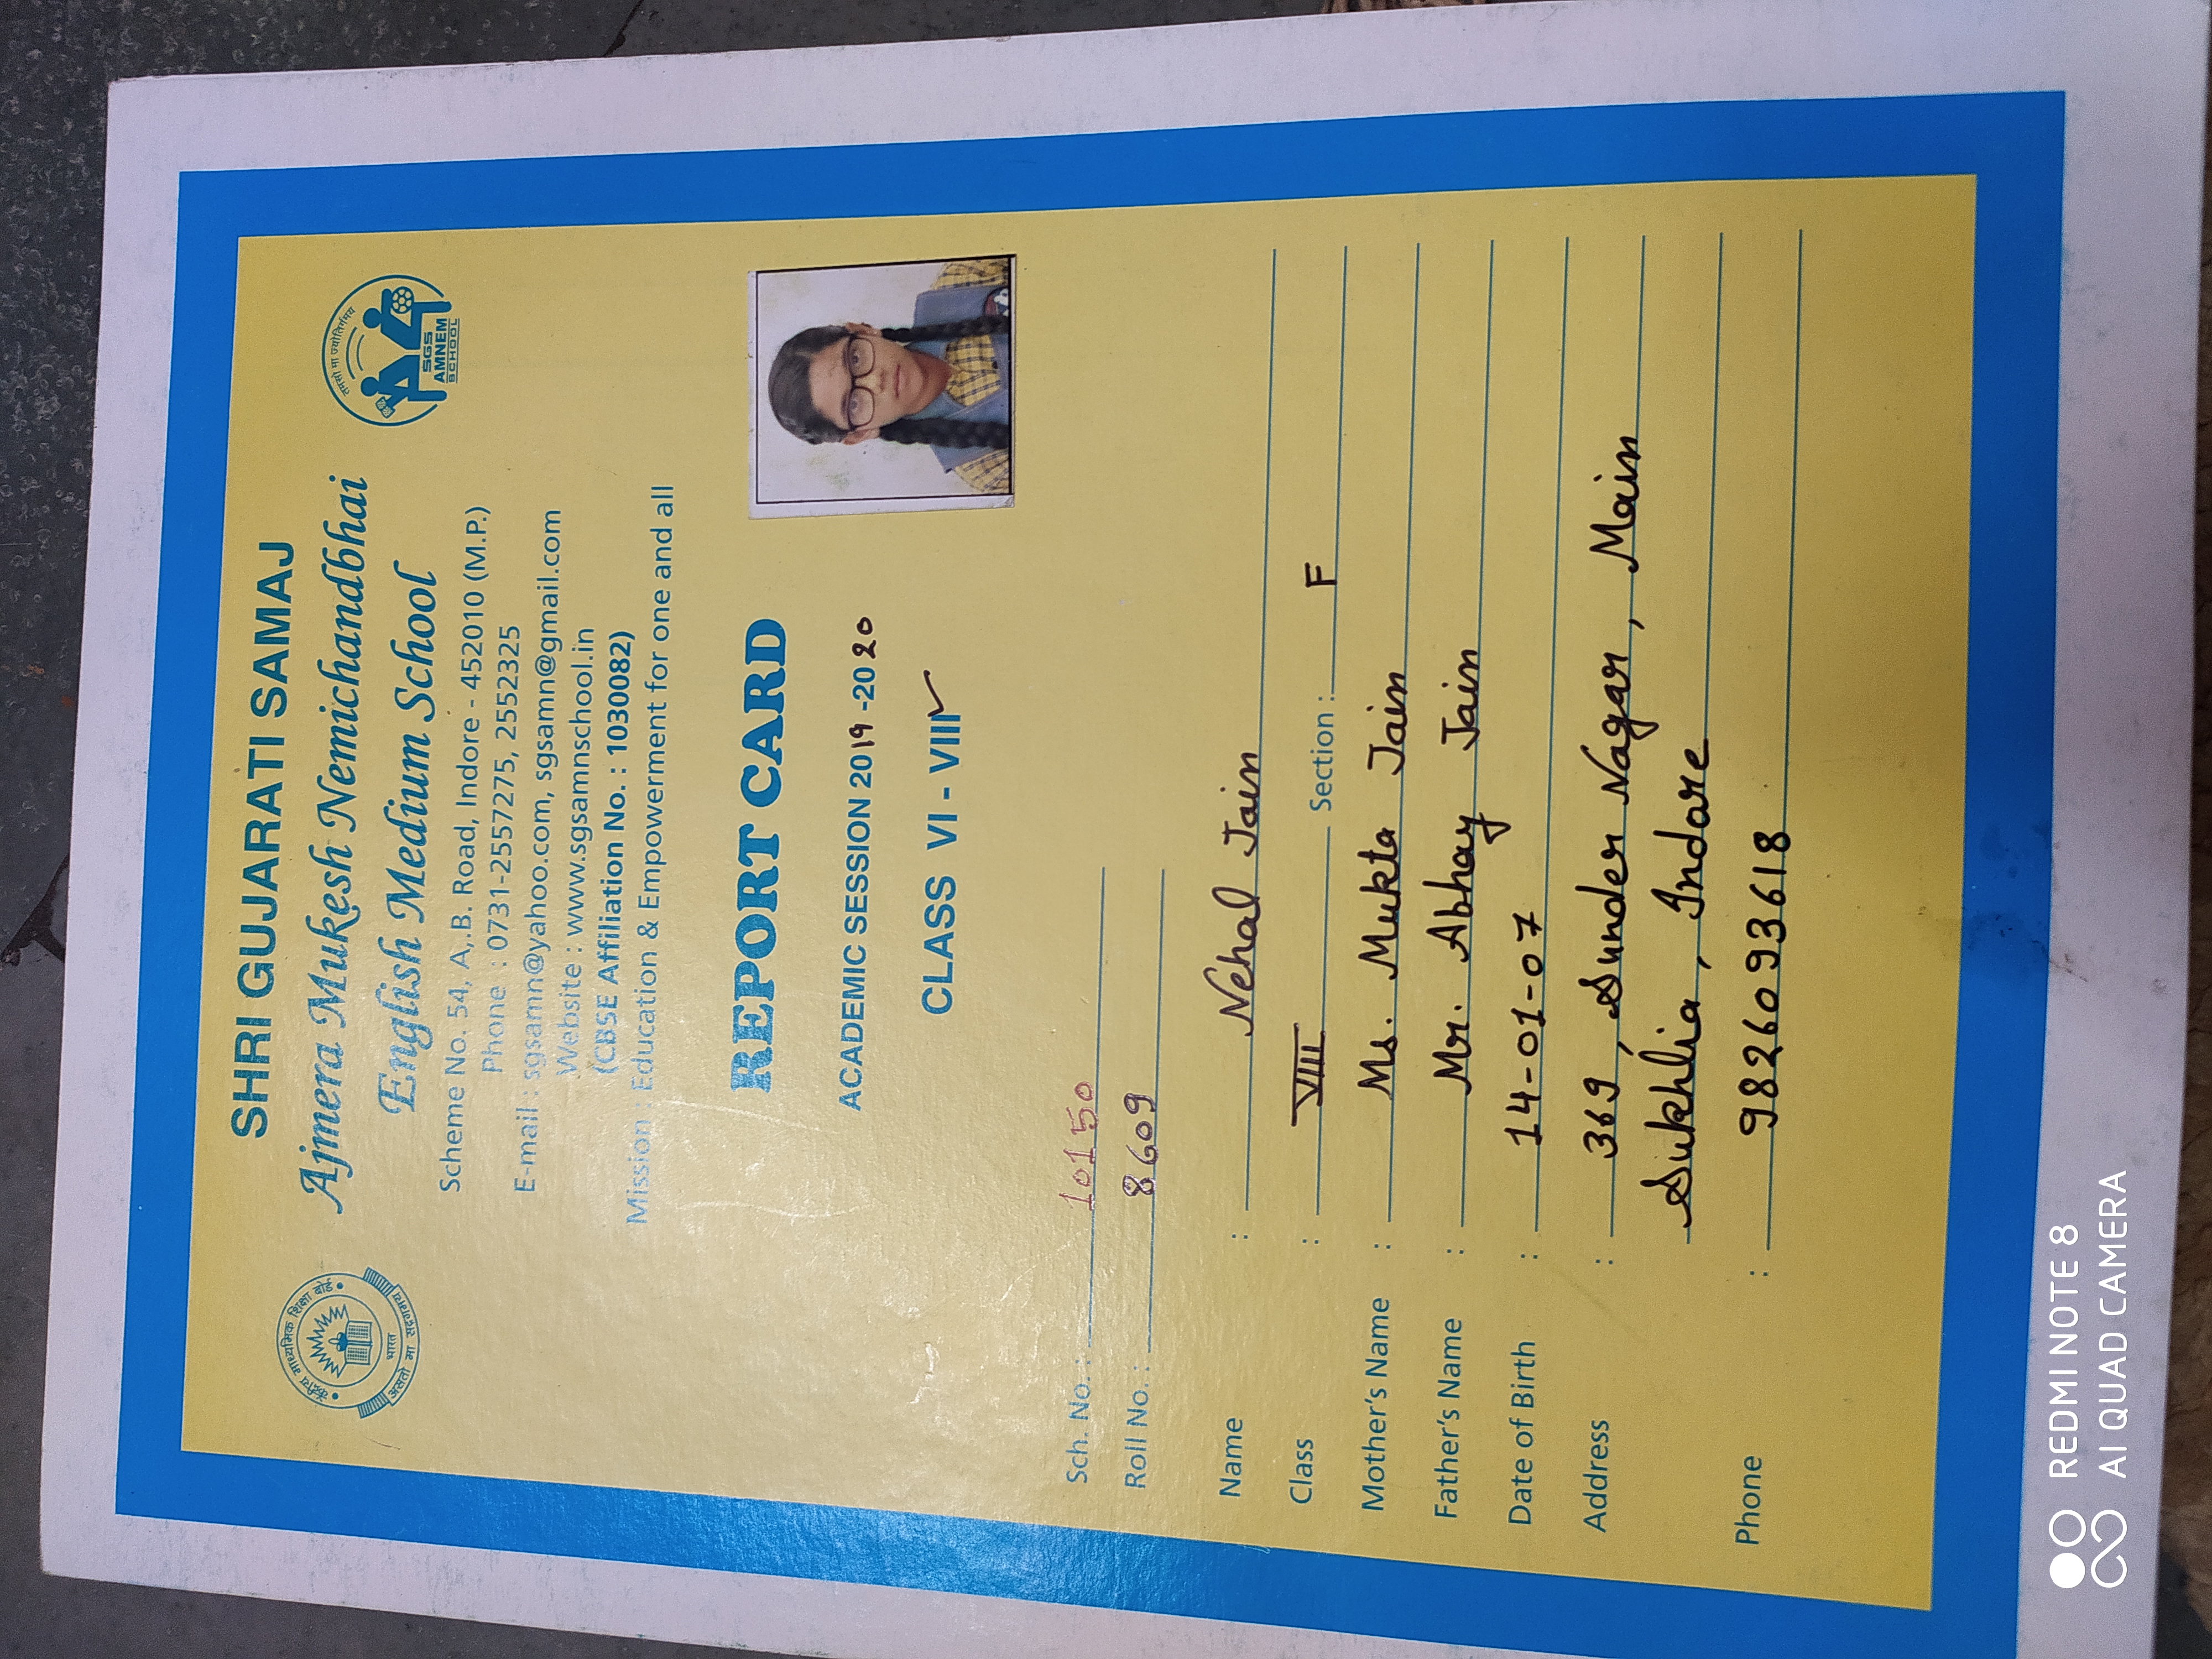 केंद्रीय माध्यमिक शिक्षा बोर्ड
भारत
असतो मा सद्गमय
SHRI GUJARATI SAMAJ
Ajmera Mukesh Nemichandbhai
English Medium School
Scheme No. 54, A,.B. Road, Indore - 452010 (M.P.)
Phone : 0731-2557275, 2552325
E-mail : sgsannn@yahoo.com, sgsamn@gmail.com
Website : www.sgsamnschool.in
(CBSE Affiliation No. : 1030082)
Mission : Education & Empowerment for one and all
तमसो मा ज्योतिर्गमय
SGS
AMNEM
SCHOOL
REPORT CARD
ACADEMIC SESSION 2019-2020
CLASS VI - VIII
Sch. No. : 10150
Roll No. : 8609
Name : Nehal Jain
Class : VIII Section : F
Mother's Name : Ms. Mukta Jain
Father's Name : Mr. Abhay Jain
Date of Birth : 14-01-07
Address : 369, Sunder Nagar, Main
Sukhlia, Indore
Phone : 9826093618
REDMI NOTE 8
AI QUAD CAMERA